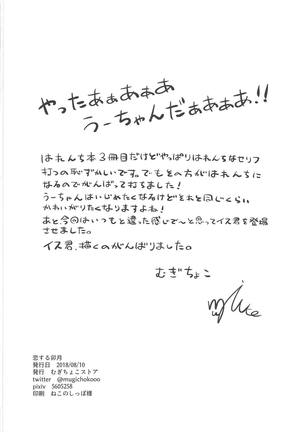 やったあぁぁぁぁ
うーちゃんだぁぁぁぁ!!
はれんち本3冊目だけどやっぱりはれんちなセリフ
打つの恥ずかしいです。でもその方がはれんちに
なるのでがんばって打ちました!
うーちゃんはいじめたくなるけどそれと同じくらい
かわいがりたくなりますよね!
あと今回はいつもと違った感じで〜と思ってイス君を登場
させました。
イス君、描くのがんばりました。
むぎちょこ
恋する卯月
発行日 2018/08/10
発行 むぎちょこストア
twitter @mugichokooo
pixiv 5605258
印刷 ねこのしっぽ様